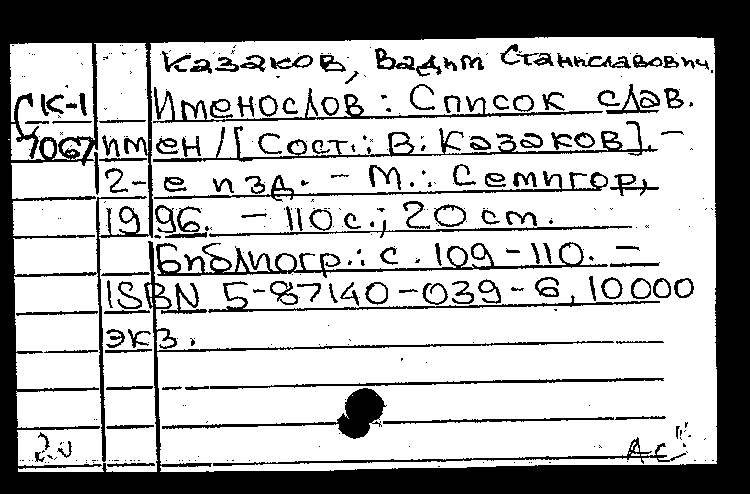 Казаков, Вадим Станиславович.
СК-1 Именослов : Список слав.
7067 имен / [Сост.: В. Казаков]. -
2-е изд. - М.: Семигор,
1996. - 110 с.; 20 см.
Библиогр.: с. 109-110. -
ISBN 5-87140-039-6, 10000
экз.